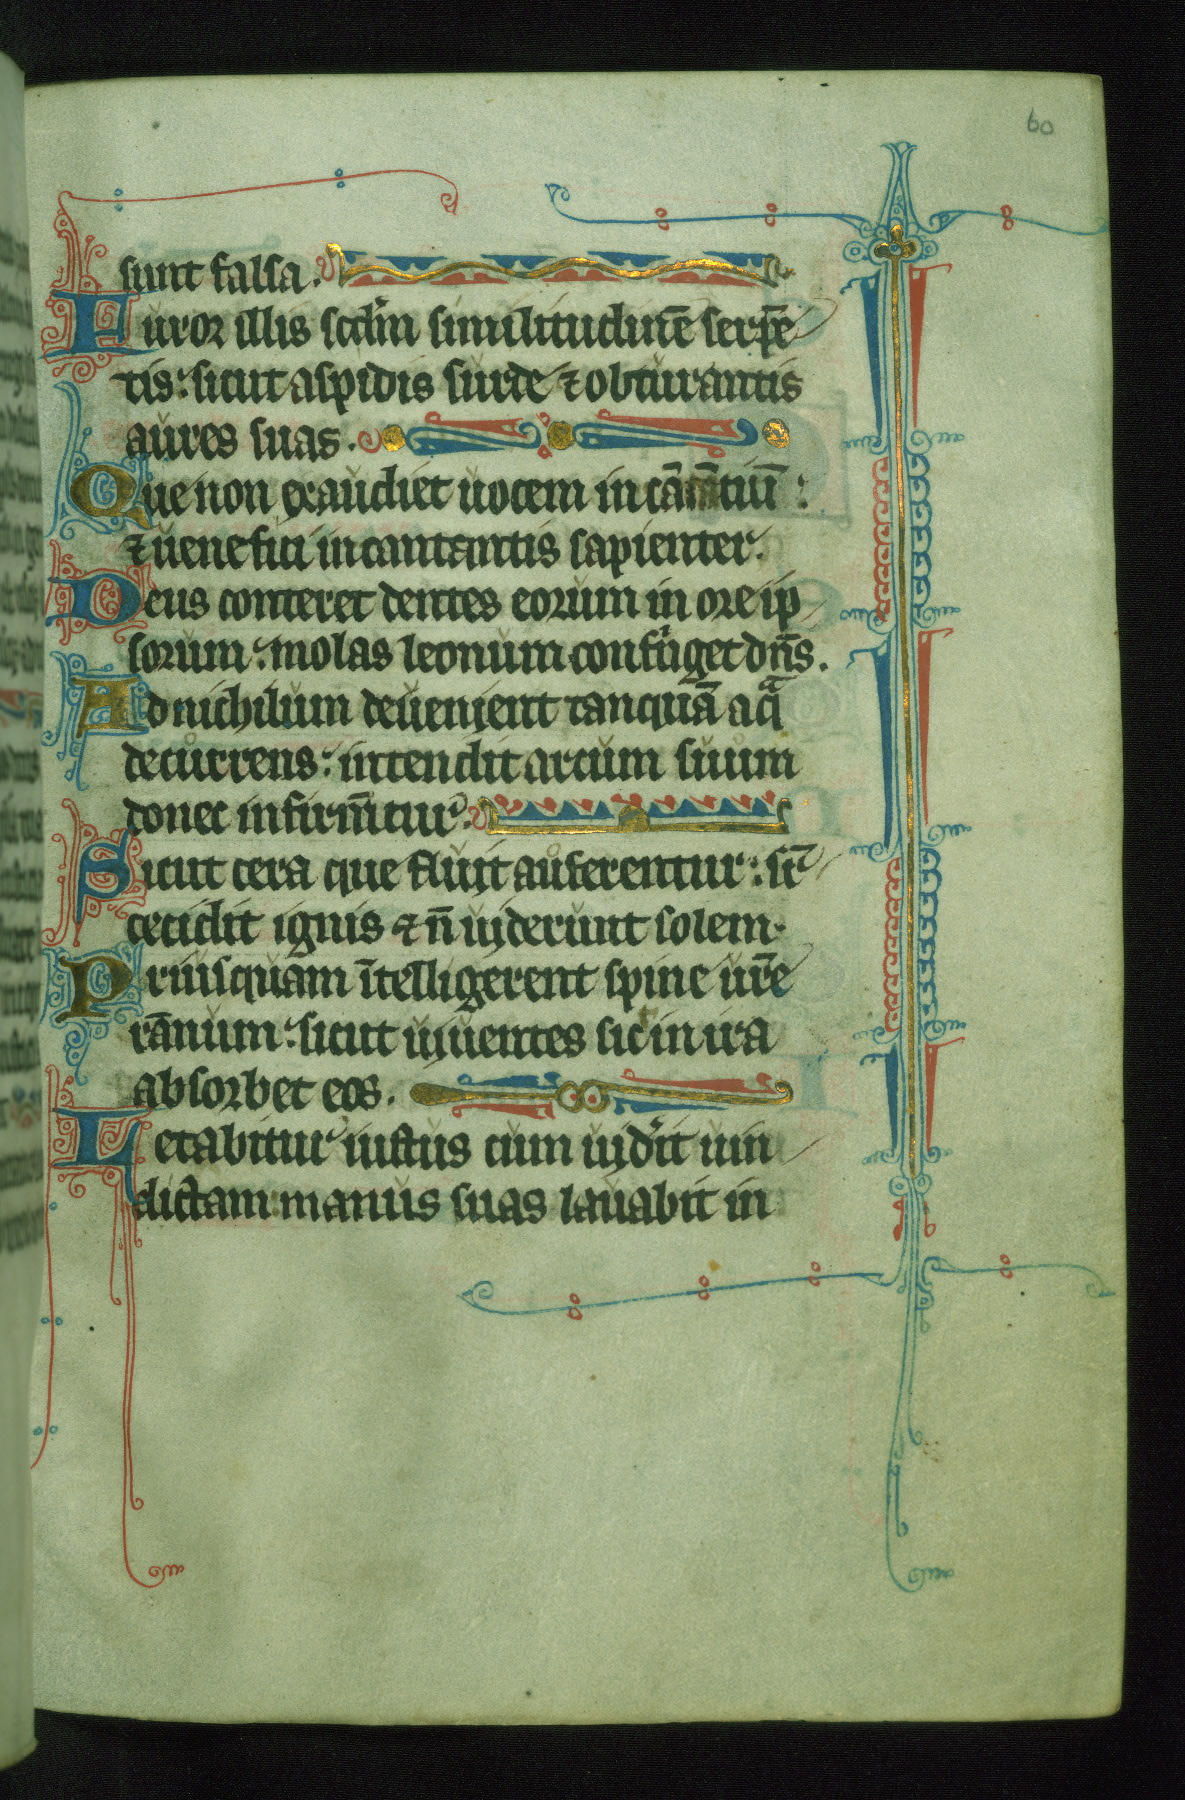 60
sunt falsa.
Furor illis scdm similitudinē serpē
tis: sicut aspidis surde ⁊ obturantis
aures suas.
Que non exaudiet uocem incātātiū:
⁊ uenefici incantantis sapienter.
Deus conteret dentes eorum in ore ip
sorum: molas leonum confriget dn̄s.
Ad nichilum deuenient tanquā aqa
decurrens: intendit arcum suum
donec infirm̄tur.
Sicut cera que fluit auferentur: sr̄
cecidit ignis ⁊ n̄ uiderunt solem.
Priusquam īntelligerent spine ur̄e
rānum: sicut uiuentes sic in ira
absorbet eos.
Letabitur iustus cum uidit uin
dictam manus suas lauabit in